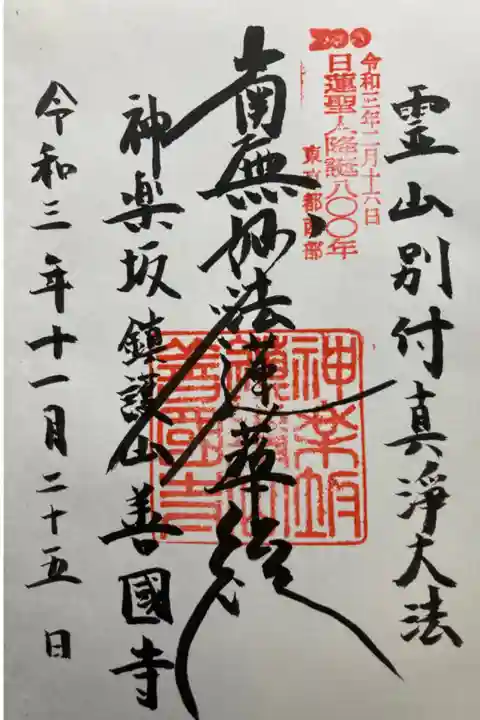 霊山別付真淨大法
令和三年二月十六日
日蓮聖人降誕八〇〇年
東京都南部
南無妙法蓮華経
神楽坂鎮護山善國寺
令和三年十一月二十五日
神楽坂
善國寺